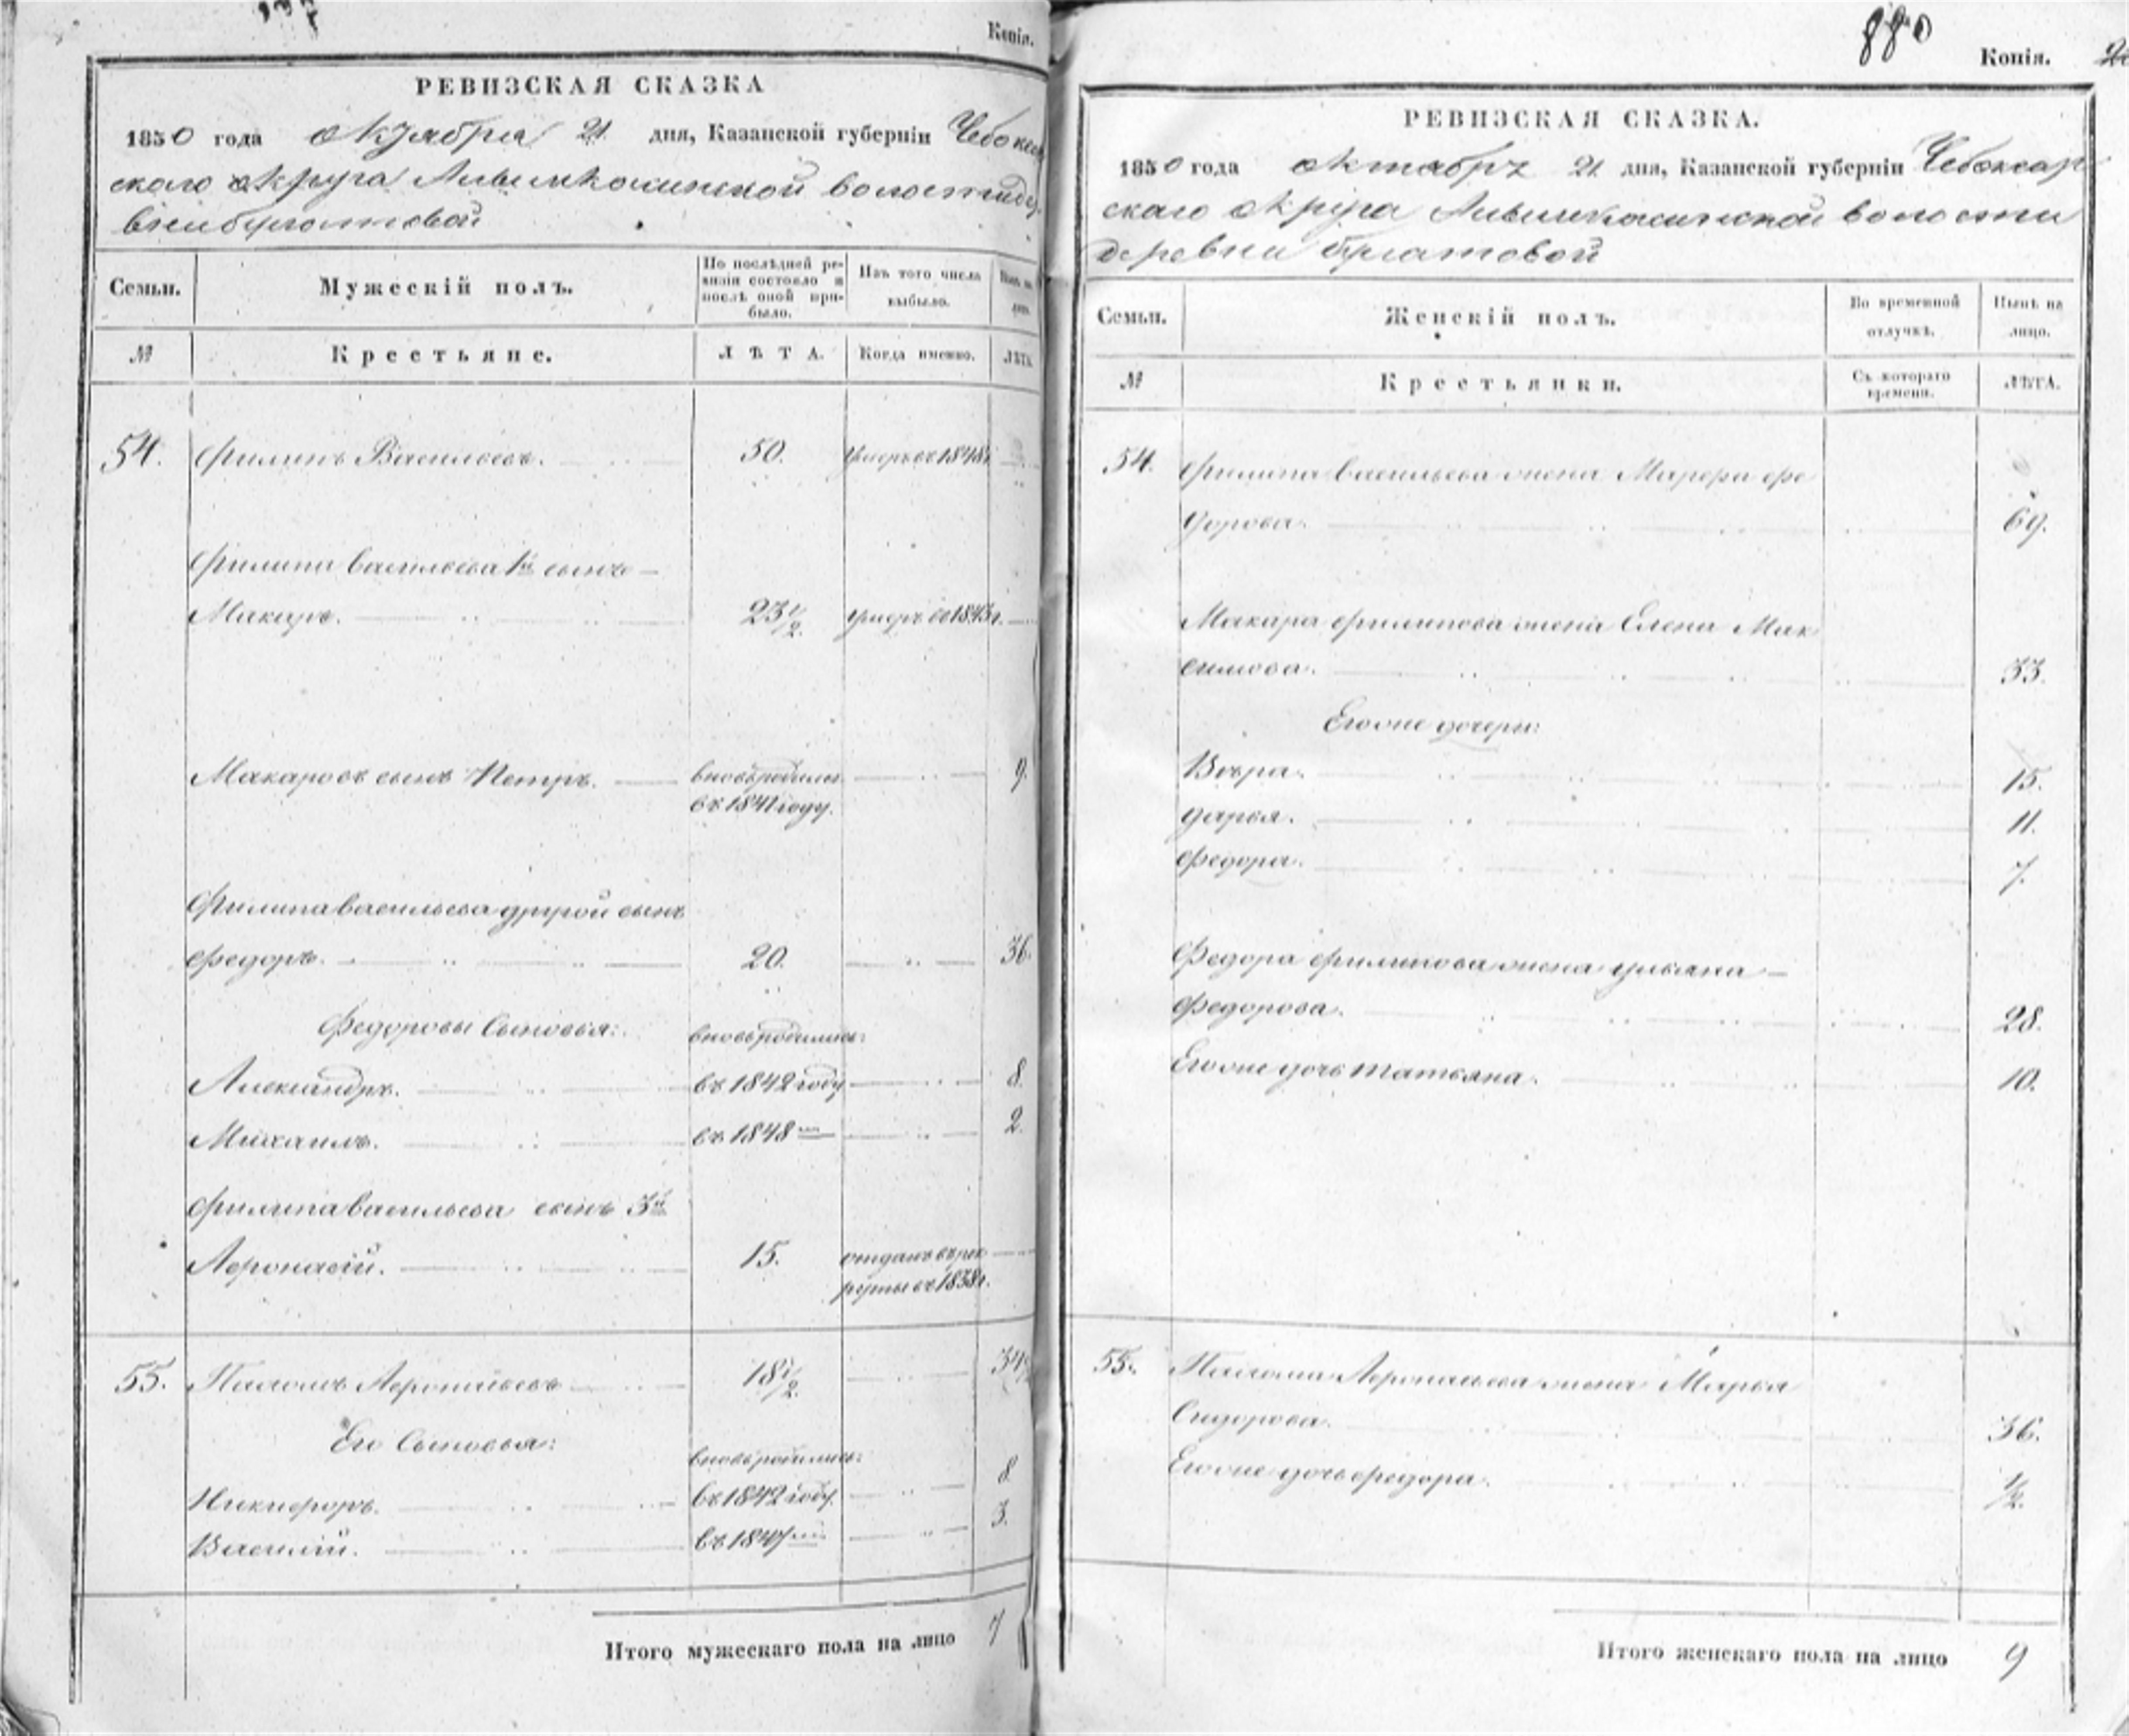 Копія.
РЕВИЗСКАЯ СКАЗКА
1850 года октября 21 дня, Казанской губерніи Чебоксар
скаго округа волости де
вни
Семьи.
Мужескій полъ.
По послѣдней ре-
визіи состояло и
послѣ оной при-
было.
Изъ того числа
выбыло.
№
Крестьяне.
ЛѢТА.
Когда именно.
ЛѢТА
54. Филипъ Васильевъ. 50. умеръ въ 1848 г.
Филипа Васильева 1й сынъ
Макаръ. 23 1/2. умеръ въ 1843 г.
Макаровъ сынъ Петръ. вновь родился 9.
въ 1841 году.
Филипа Васильева другой сынъ
Федоръ. 20. 36.
Федоровы Сыновья: вновь родились:
Александръ. въ 1842 году 8.
Михаилъ. въ 1848 2.
Филипа Васильева сынъ 3й
Афонасій. 15. отданъ въ рек
руты въ 1838 г.
55. Пахомъ Афонасьевъ 18 1/2. 34
Его Сыновья: вновь родились:
Никифоръ. въ 1842 году. 8
Василій. въ 1847 3.
Итого мужескаго пола на лицо 7
880
Копія.
РЕВИЗСКАЯ СКАЗКА.
1850 года октября 21 дня, Казанской губерніи Чебоксар
скаго округа волости
деревни
Семьи.
Женскій полъ.
Во временной
отлучкѣ.
Нынѣ на
лицо.
№
Крестьянки.
Съ котораго
времени.
ЛѢТА.
54. Филипа Васильева жена Марфа Фе
дорова. 69.
Макара Филипова жена Елена Мак
симова. 33.
Его же дочери:
Вѣра. 15.
Дарья. 11.
Федора. 7.
Федора Филипова жена Ульяна
Федорова. 28.
Его же дочь Татьяна. 10.
55. Пахома Афонасьева жена Марья
Сидорова. 36.
Его же дочь Федора. 1/2.
Итого женскаго пола на лицо 9